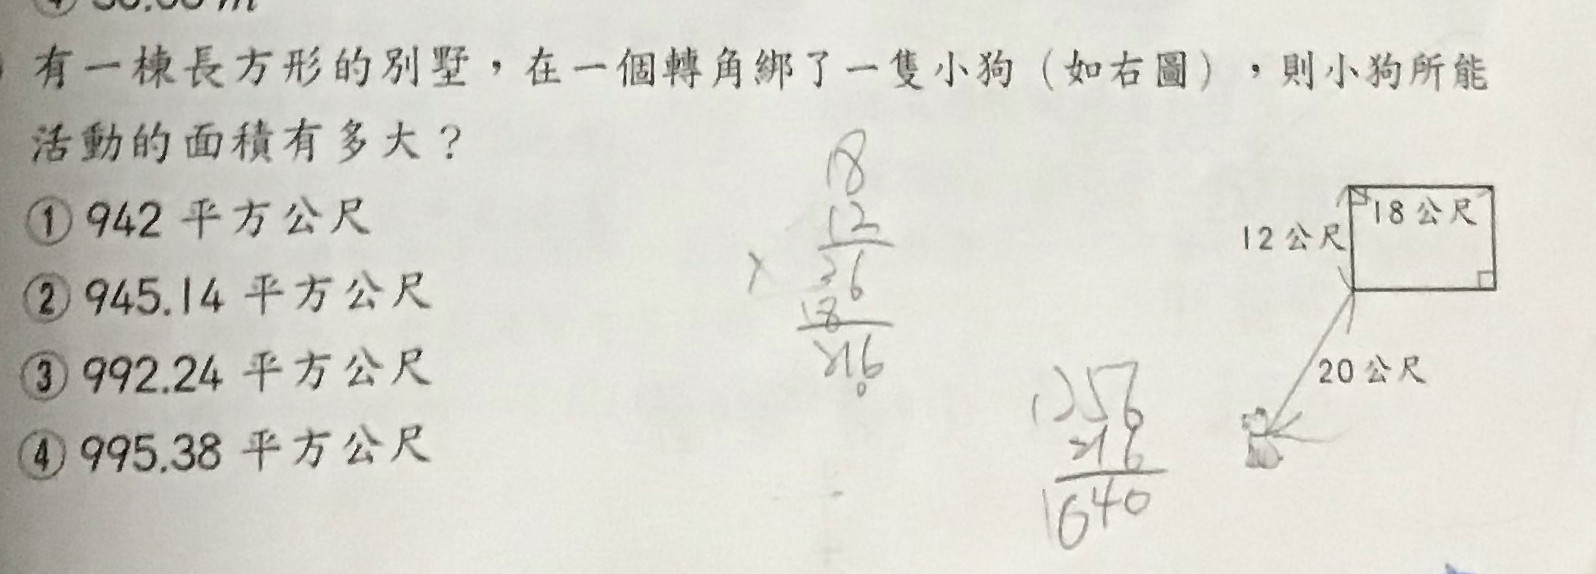 有一棟長方形的別墅，在一個轉角綁了一隻小狗（如右圖），則小狗所能
活動的面積有多大？
① 942 平方公尺
② 945.14 平方公尺
③ 992.24 平方公尺
④ 995.38 平方公尺
18
12
×
36
18
216
18公尺
12公尺
20公尺
1256
216
1040